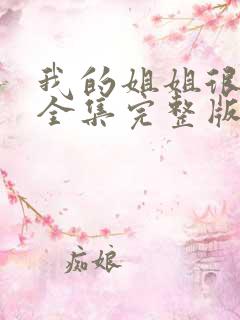 我的姐姐很
全集完整版
痴娘